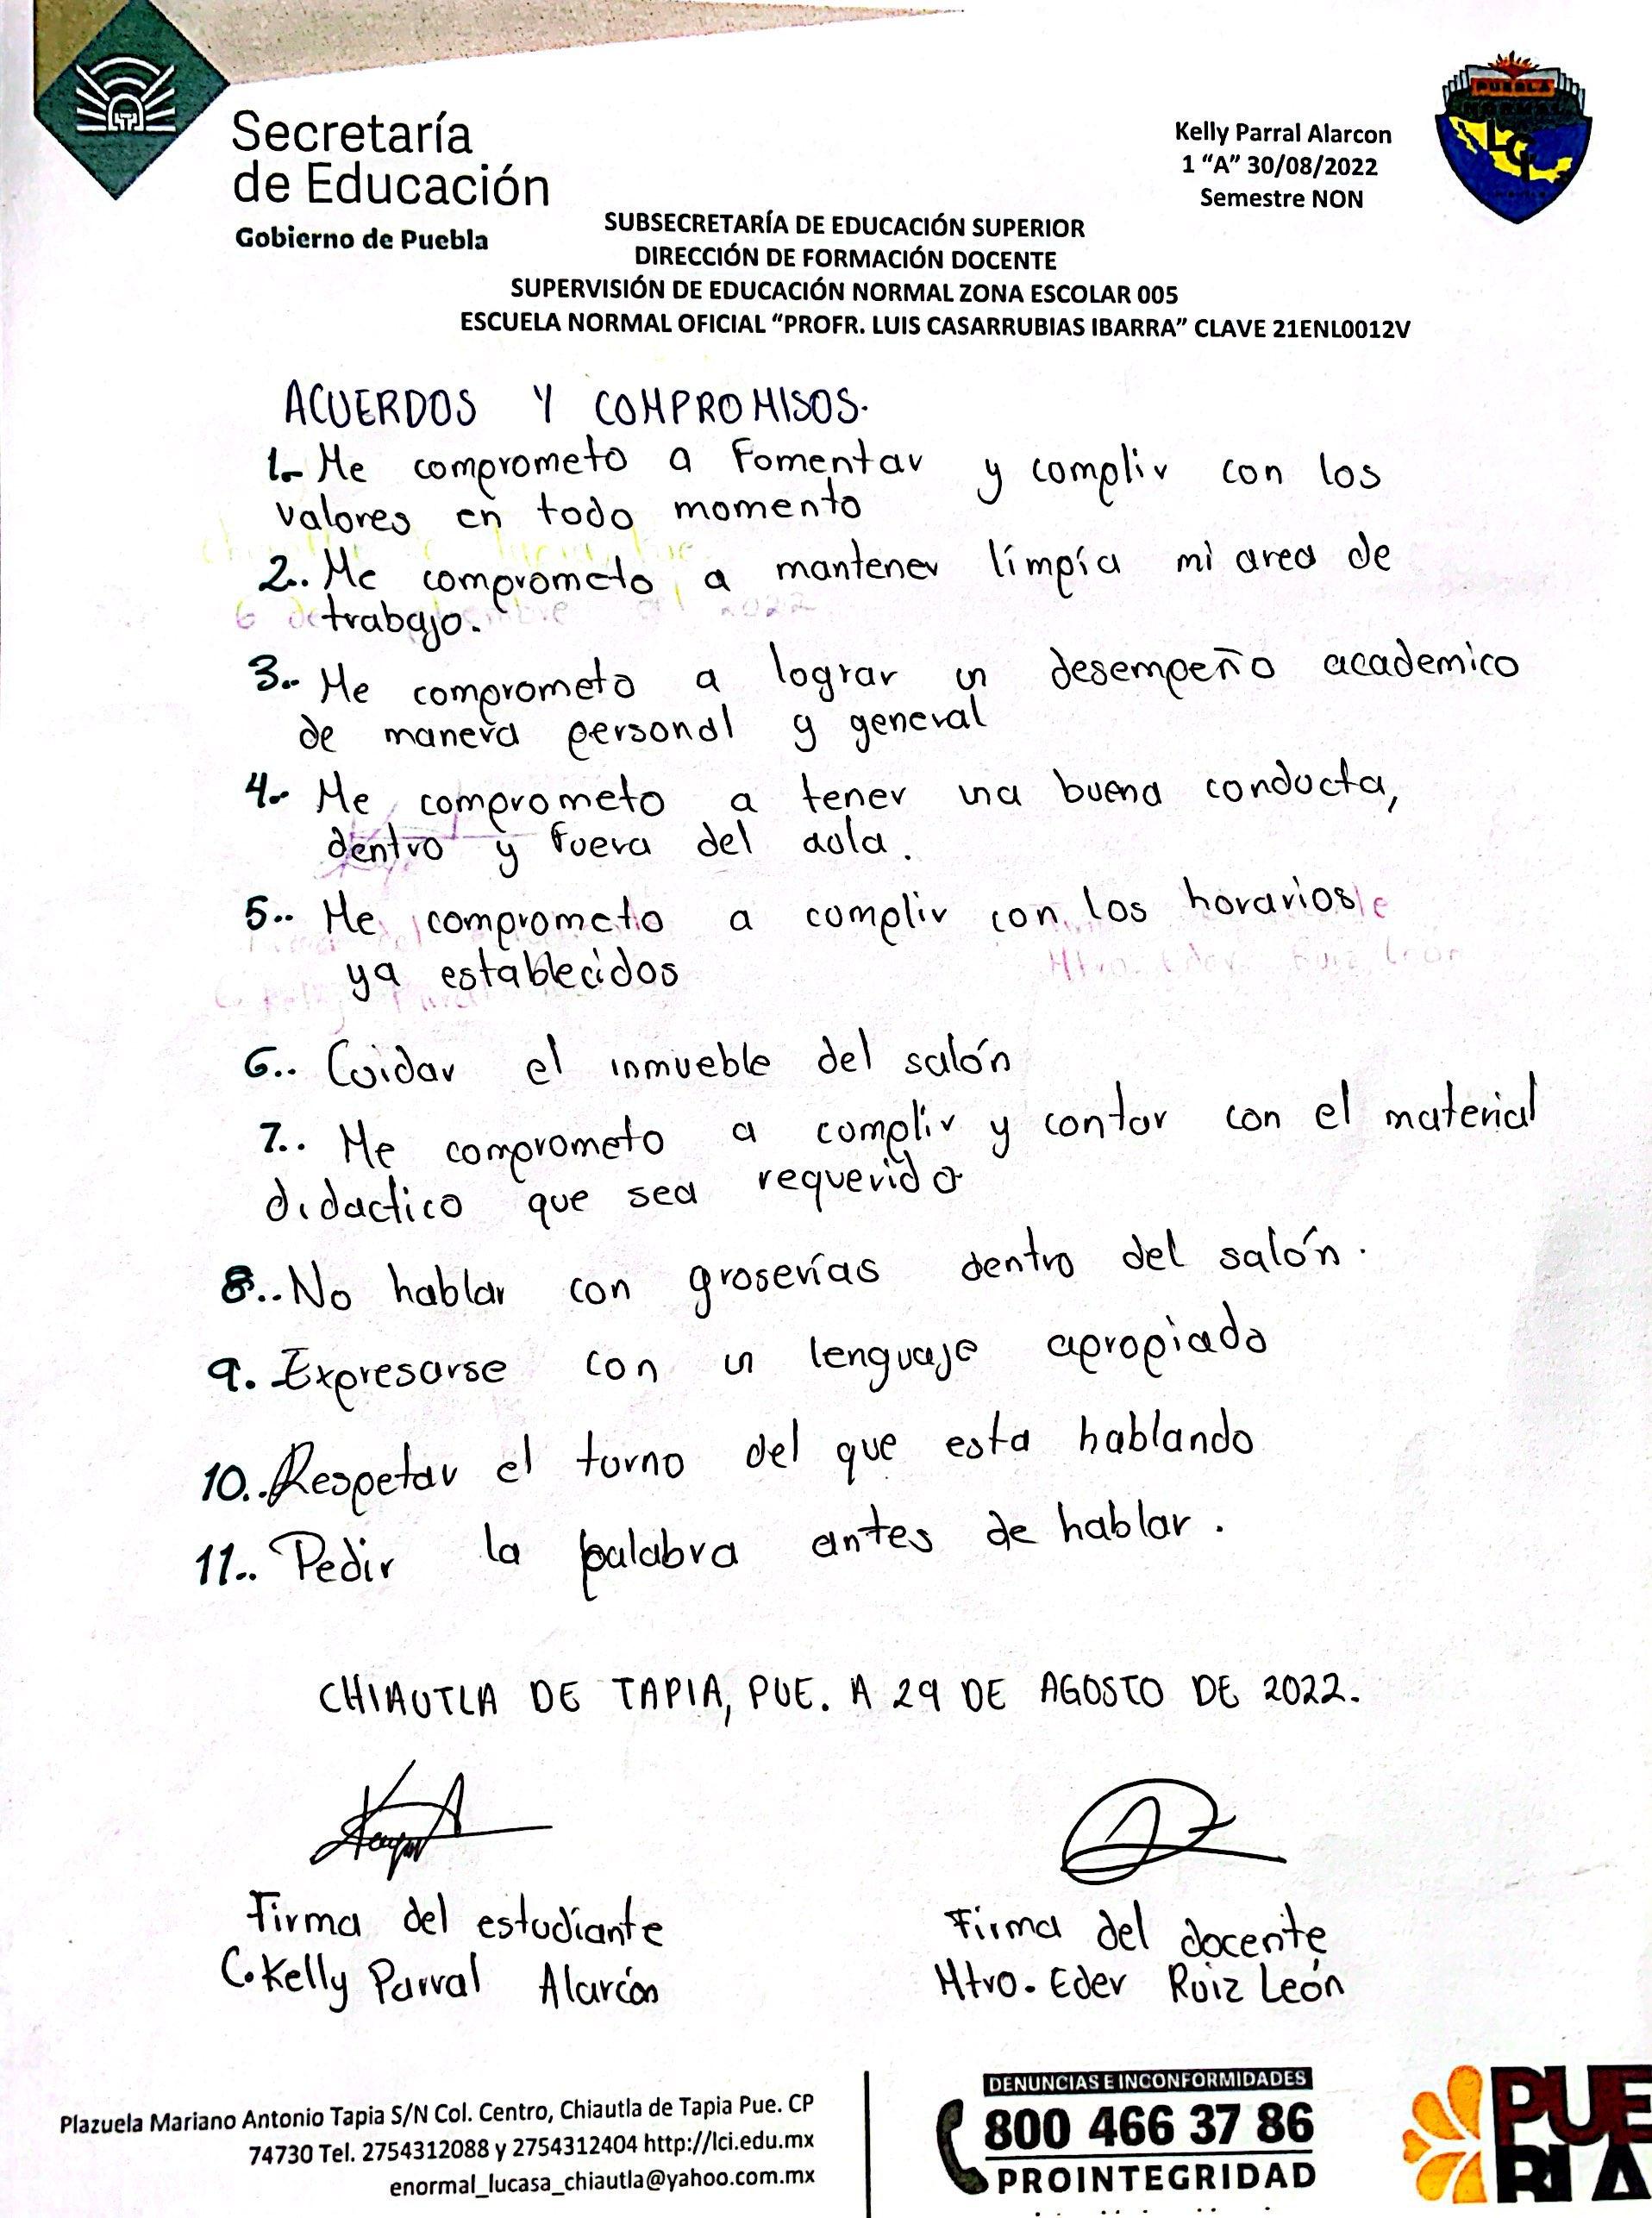 Secretaría
de Educación
Gobierno de Puebla
Kelly Parral Alarcon
1 “A” 30/08/2022
Semestre NON
SUBSECRETARÍA DE EDUCACIÓN SUPERIOR
DIRECCIÓN DE FORMACIÓN DOCENTE
SUPERVISIÓN DE EDUCACIÓN NORMAL ZONA ESCOLAR 005
ESCUELA NORMAL OFICIAL “PROFR. LUIS CASARRUBIAS IBARRA” CLAVE 21ENL0012V
ACUERDOS Y COMPROMISOS.
1.- Me comprometo a Fomentar y complir con los
valores en todo momento
2.. Me comprometo a mantener límpia mi area de
trabajo.
3.. Me comprometo a lograr un desempeño academico
de manera personal y general
4.- Me comprometo a tener una buena conducta,
dentro y fuera del aula.
5.. Me comprometo a cumplir con los horarios
ya establecidos
6.. Cuidar el inmueble del salón
7.. Me comprometo a cumplir y contar con el material
didactico que sea requerido
8.. No hablar con groserías dentro del salón.
9. Expresarse con un lenguaje apropiado
10.. Respetar el turno del que esta hablando
11.. Pedir la palabra antes de hablar.
CHIAUTLA DE TAPIA, PUE. A 29 DE AGOSTO DE 2022.
Firma del estudiante
C. Kelly Parral Alarcón
Firma del docente
Mtro. Eder Ruiz León
Plazuela Mariano Antonio Tapia S/N Col. Centro, Chiautla de Tapia Pue. CP
74730 Tel. 2754312088 y 2754312404 http://lci.edu.mx
enormal_lucasa_chiautla@yahoo.com.mx
DENUNCIAS E INCONFORMIDADES
800 466 37 86
PROINTEGRIDAD
PUE
BLA